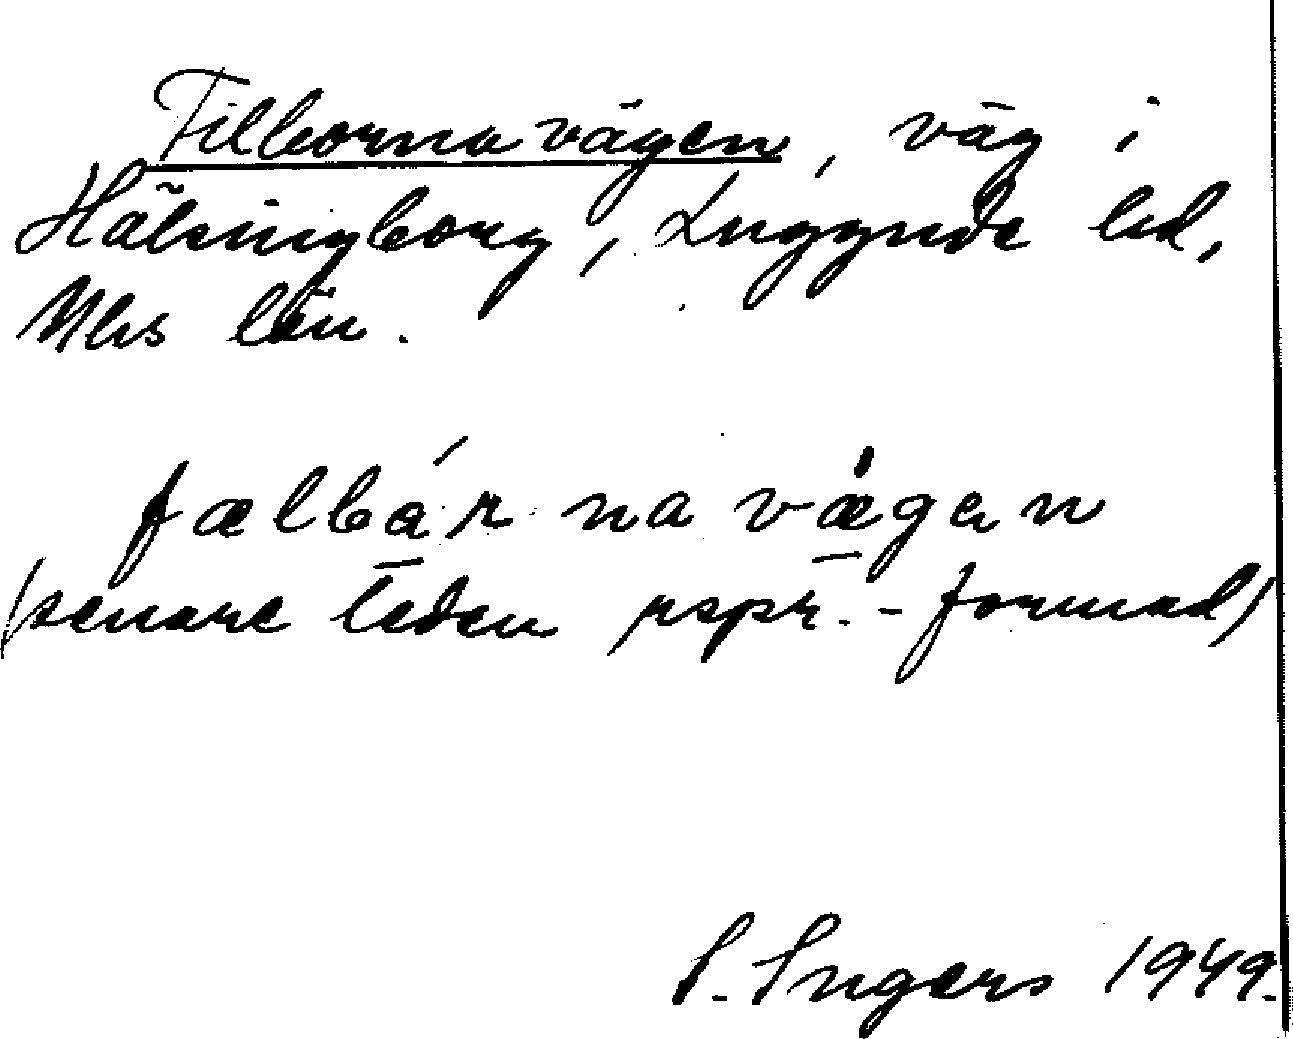 Filbornavägen, väg i
Hälsingborg, Luggude hd,
Mhs län.
fælbá̱r na væ̱gen
(senare leden rspr.-formad)
I. Ingers 1949.